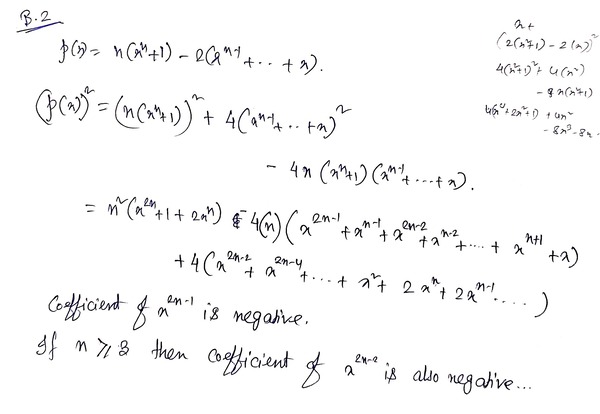 B.2
p(x) = n(xⁿ+1) - 2(xⁿ⁻¹+ . . + x).
(p(x))² = (n(xⁿ+1))² + 4(xⁿ⁻¹+ . . + x)²
- 4n (xⁿ+1)(xⁿ⁻¹+ . . . + x).
= n²(x²ⁿ+1+2xⁿ) - 4(n)(x²ⁿ⁻¹+xⁿ⁻¹+x²ⁿ⁻²+xⁿ⁻²+ . . . . + xⁿ⁺¹+x)
+ 4(x²ⁿ⁻²+ x²ⁿ⁻⁴+ . . . + x²+ 2xⁿ+ 2xⁿ⁻¹ . . . . )
Coefficient of x²ⁿ⁻¹ is negative.
If n ⩾ 3 then coefficient of x²ⁿ⁻² is also negative...
x+
(2(x²+1) - 2(x))²
4(x²+1)² + 4(x²)
- 8x(x²+1)
4(x⁴+2x²+1) + 4x²
- 8x³ - 8x